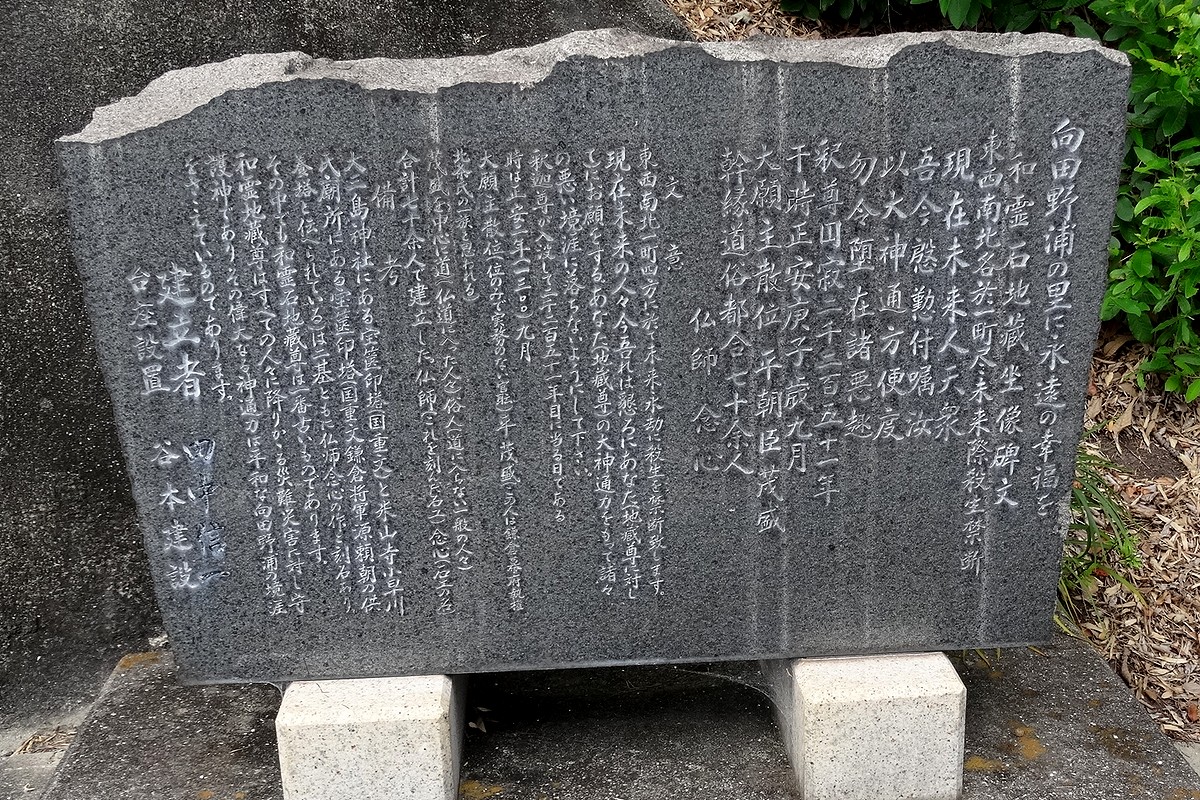 向田野浦の里に永遠の幸福を
和霊石地蔵坐像碑文
東西南北各於一町尽未来際殺生禁断
現在未来人天衆
吾今慇勤付嘱汝
以大神通方便度
勿令堕在諸悪趣
釈尊円寂二千二百五十一年
干時正安庚子歳九月
大願主散位 平朝臣茂盛
幹縁道俗都合七十余人
仏師 念心
文意
東西南北一町四方に於て未来永劫に殺生を禁断致します。
現在未来の人々今吾れは懇ろにあなた(地蔵尊)に対し
てお願をするあなた(地蔵尊)の大神通力をもって諸々
の悪い境涯に落ちないようにして下さい。
釈迦尊が入滅して二千二百五十一年目に当る日である
時は正安二年(一三〇〇)九月
大願主散位(位のみで
平茂盛(この人は鎌倉幕府執権
北条氏の一族と思われる)
茂盛を中心に道(仏道に入った人々)俗(仏道に入らない一般の人々)
合計七十余人で建立した、仏師これを刻んだ石工念心(石工の名
備考
大三島神社にある宝篋印塔(国重文)と米山寺小早川
氏廟所にある宝篋印塔(国重文鎌倉将軍源頼朝の供
養塔と伝えられている)は二基ともに仏師念心の作と刻石あり
その中でも和霊石地蔵尊は一番古いものであります。
和霊地蔵尊はすべての人々に降りかかる災難災害に対し守
護神でありその偉大なる神通力は平和な向田野浦の境涯
をささえているのであります。
建立者 田中信一
台座設置 谷本建設